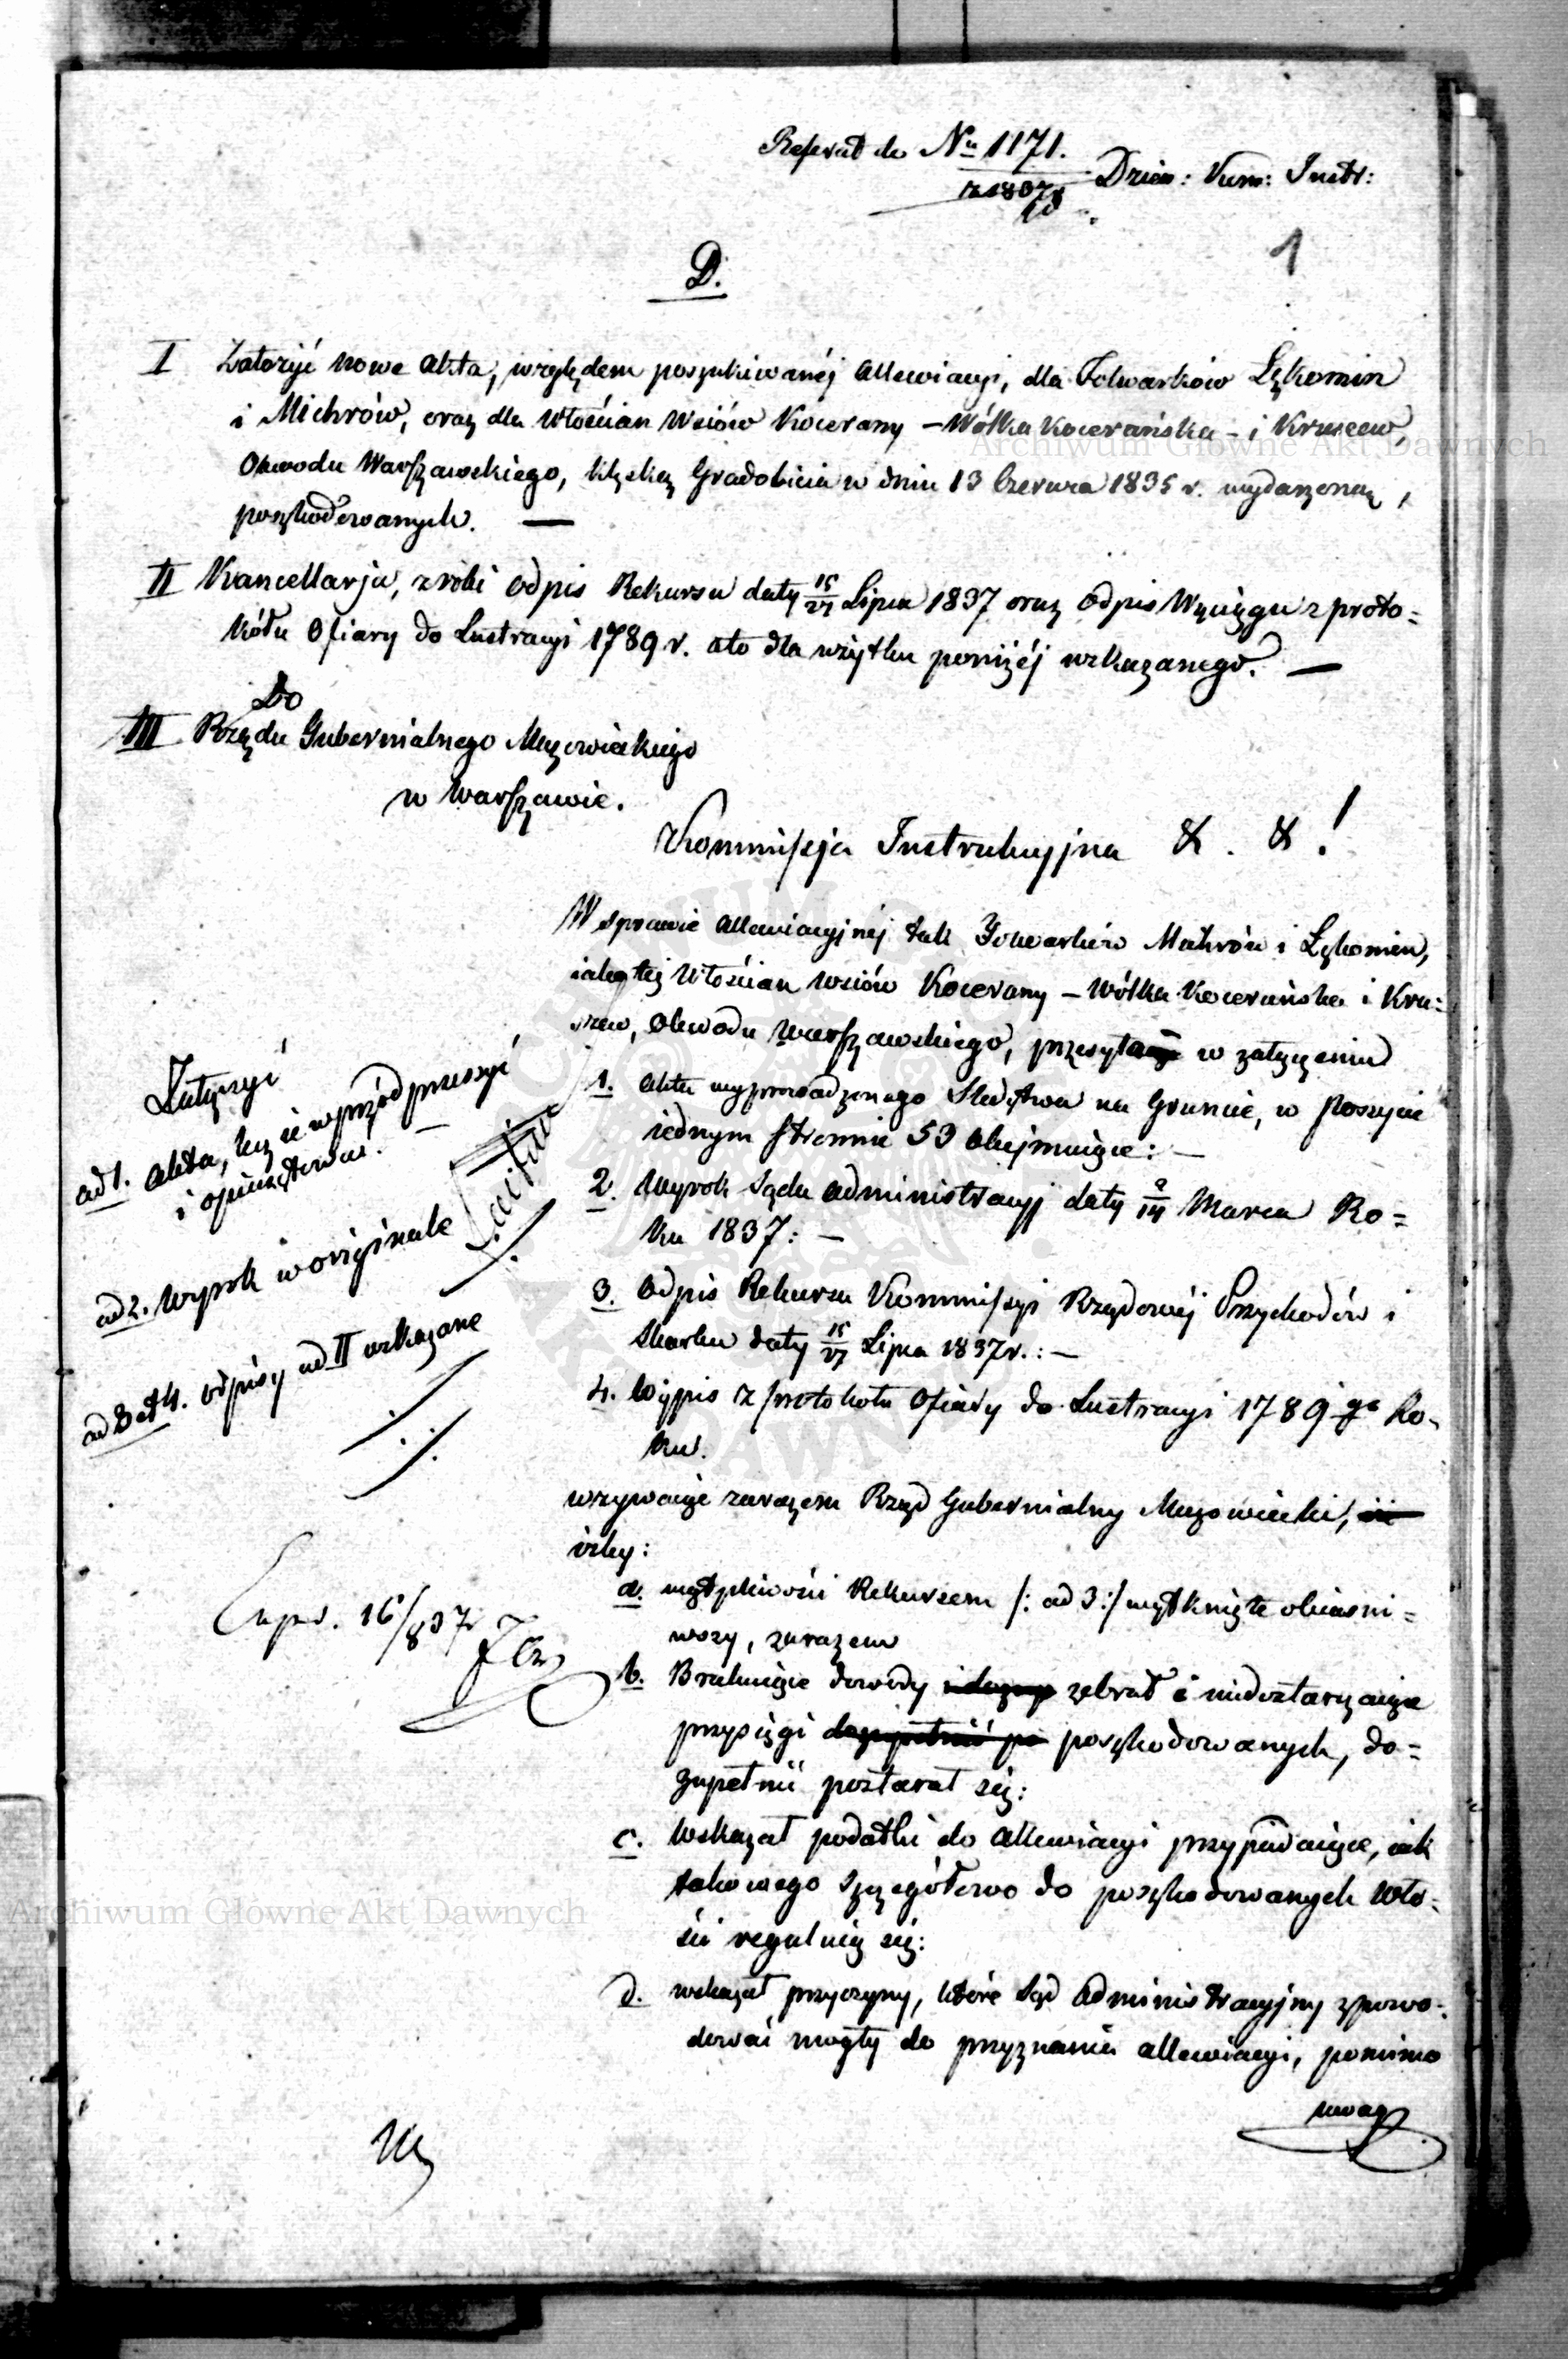 Referat do Nu 1171.
z 1837
Dzien: Kom: Instr:
1
D.
I Założyć nowe akta, względem poszukiwanéj allewiacyi, dla Folwarków Lękomin
i Michrów, oraz dla Włościan Wsiów Kocerany – Wólka Kocerańska – i Kruszew,
Obwodu Warszawskiego, klęską Gradobicia w dniu 13 Czerwca 1835 r. wydarzoną,
poszkodowanych. —
II Kancellarja, zrobi odpis Rekursu daty 15/27 Lipca 1837 oraz odpis Wyciągu z proto=
kółu Ofiary do Lustracyi 1789 r. a to dla użytku poniżéj wskazanego. —
Do
III Rządu Gubernialnego Mazowieckiego
w Warszawie.
Kommissja Instrukcyjna & . & !
W sprawie allewiacyjnéj tak Folwarków Michrów i Lękomin,
iako też Włościan wsiów Kocerany – Wólka Kocerańska i Kru=
szew, Obwodu Warszawskiego, przesyła w załączeniu
1. akta wyprowadzonego Śledztwa na Gruncie, w Poszycie
iednym stronnic 53 obejmuiące: –
2. Wyrok Sądu administracyj daty 2/14 Marca Ro=
ku 1837: –
3. Odpis Rekursu Kommissyi Rządowéj Przychodów i
Skarbu daty 15/27 Lipca 1837 r.: –
4. Wypis z protokołu Ofiary do Lustracyi 1789 go Ro-
ku.
wzywaiąc zarazem Rząd Gubernialny Mazowiecki,
iżby:
a. wątpliwości Rekursem /: ad 3:/ wytknięte obiaśni=
wszy, zarazem
b. Brakuiące dowody zebrał i niedostarczaiące
przysięgi poszkodowanych, do=
zupełnić postarał się:
c. Wskazał podatki do allewiacyi przypadaiące, iak
takowego szczegółowo do poszkodowanych Wło=
ści regulują się:
d. wskazał przyczyny, które Sąd administracyjny spowo=
dować mogły do przyznania allewiacyi, pomimo
uwag
Załączyć
ad 1. akta, lecz ie wprzód przeszyć
i opieczętować. –
ad 2. Wyrok w originale
ad 3 et 4. odpisy ad II wskazane
Expd. 16/8 37
Archiwum Główne Akt Dawnych
Archiwum Główne Akt Dawnych